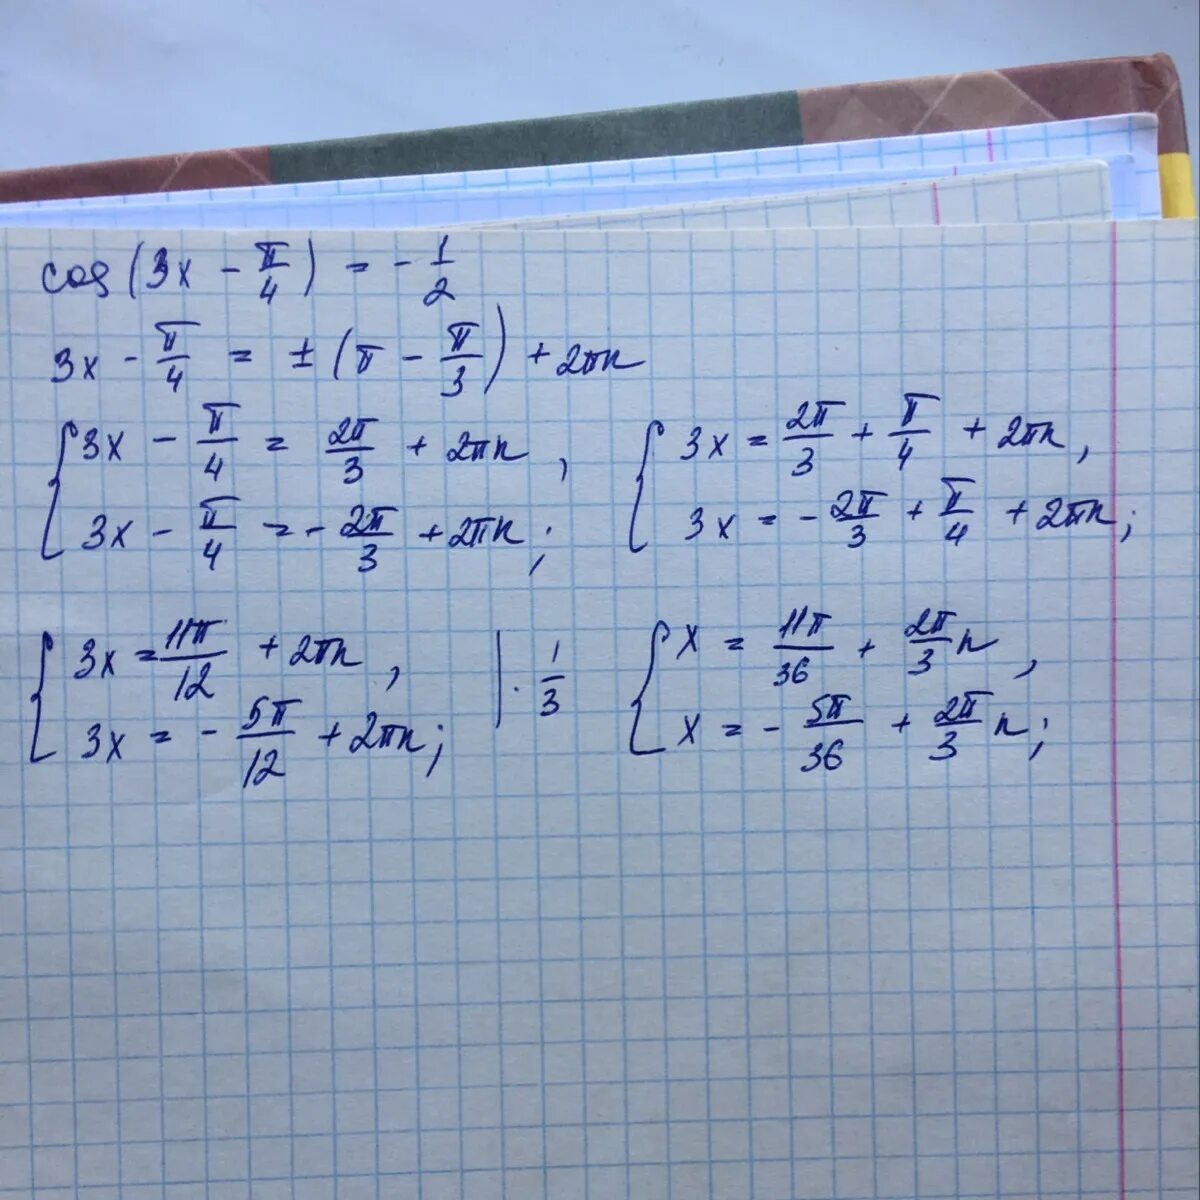 cos(3x - π/4) = - 1/2
3x - π/4 = ± (π - π/3) + 2πn
{ 3x - π/4 = 2π/3 + 2πn ,
3x - π/4 = - 2π/3 + 2πn ;
{ 3x = 2π/3 + π/4 + 2πn ,
3x = - 2π/3 + π/4 + 2πn ;
{ 3x = 11π/12 + 2πn ,
3x = - 5π/12 + 2πn ;
| · 1/3
{ x = 11π/36 + 2π/3 n ,
x = - 5π/36 + 2π/3 n ;